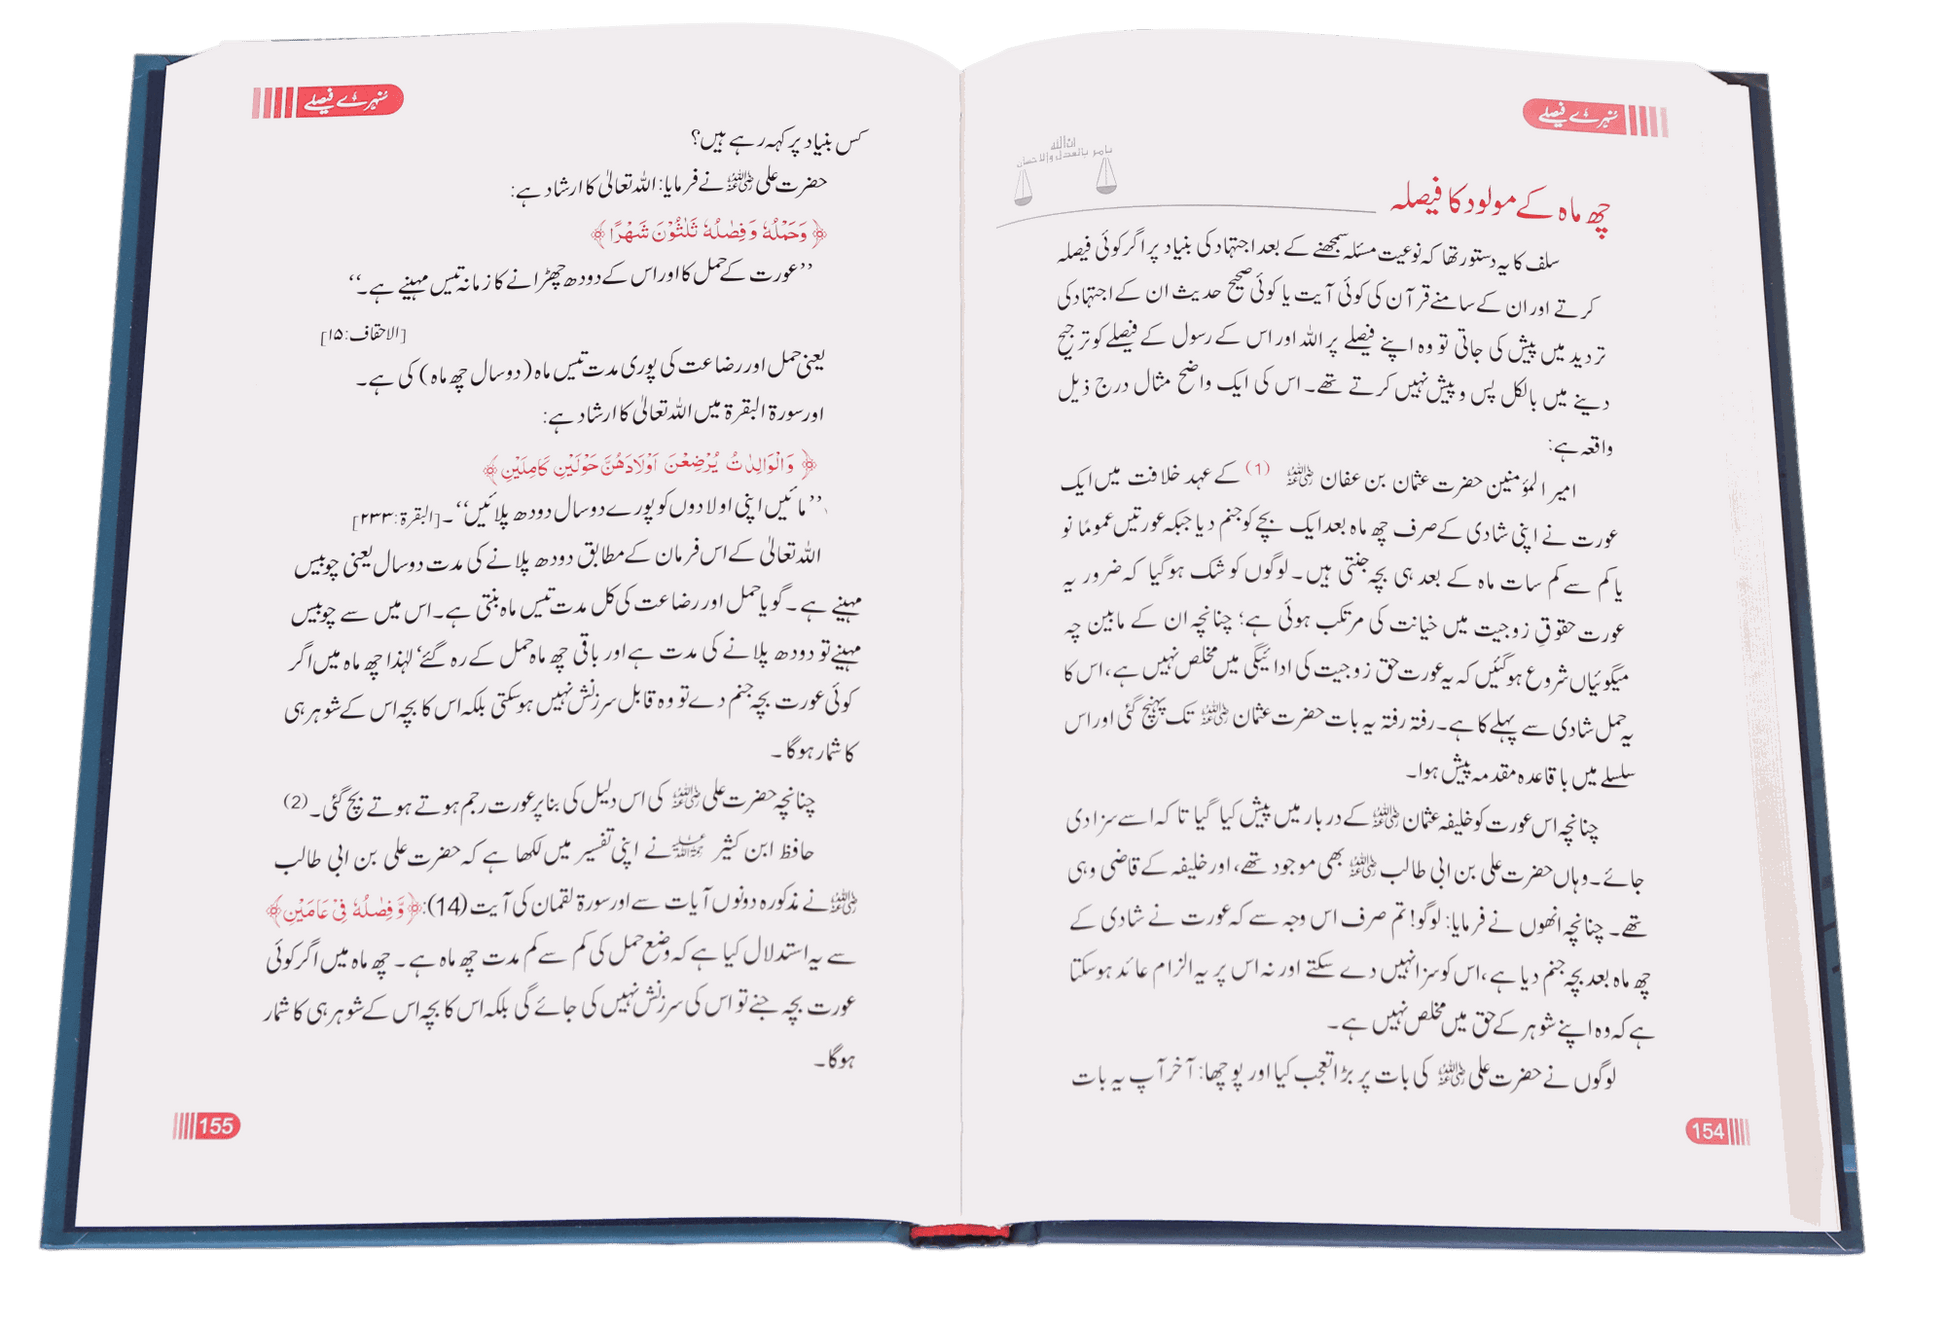 سنہرے فیصلے
ان اللہ
یامر بالعدل والاحسان
چھ ماہ کے مولود کا فیصلہ
سلف کا یہ دستور تھا کہ نوعیت مسئلہ سمجھنے کے بعد اجتہاد کی بنیاد پر اگر کوئی فیصلہ
کرتے اور ان کے سامنے قرآن کی کوئی آیت یا کوئی صحیح حدیث ان کے اجتہاد کی
تردید میں پیش کی جاتی تو وہ اپنے فیصلے پر اللہ اور اس کے رسول کے فیصلے کو ترجیح
دینے میں بالکل پس و پیش نہیں کرتے تھے۔ اس کی ایک واضح مثال درج ذیل
واقعہ ہے:
امیر المؤمنین حضرت عثمان بن عفان رضی اللہ عنہ (1) کے عہد خلافت میں ایک
عورت نے اپنی شادی کے صرف چھ ماہ بعد ایک بچے کو جنم دیا جبکہ عورتیں عموماً نو
یا کم سے کم سات ماہ کے بعد ہی بچہ جنتی ہیں۔ لوگوں کو شک ہوگیا کہ ضرور یہ
عورت حقوقِ زوجیت میں خیانت کی مرتکب ہوئی ہے؛ چنانچہ ان کے مابین چہ
میگوئیاں شروع ہوگئیں کہ یہ عورت حق زوجیت کی ادائیگی میں مخلص نہیں ہے، اس کا
یہ حمل شادی سے پہلے کا ہے۔ رفتہ رفتہ یہ بات حضرت عثمان رضی اللہ عنہ تک پہنچ گئی اور اس
سلسلے میں باقاعدہ مقدمہ پیش ہوا۔
چنانچہ اس عورت کو خلیفہ عثمان رضی اللہ عنہ کے دربار میں پیش کیا گیا تاکہ اسے سزا دی
جائے۔ وہاں حضرت علی بن ابی طالب رضی اللہ عنہ بھی موجود تھے، اور خلیفہ کے قاضی وہی
تھے۔ چنانچہ انھوں نے فرمایا: لوگو! تم صرف اس وجہ سے کہ عورت نے شادی کے
چھ ماہ بعد بچہ جنم دیا ہے، اس کو سزا نہیں دے سکتے اور نہ اس پر یہ الزام عائد ہوسکتا
ہے کہ وہ اپنے شوہر کے حق میں مخلص نہیں ہے۔
لوگوں نے حضرت علی رضی اللہ عنہ کی بات پر بڑا تعجب کیا اور پوچھا: آخر آپ یہ بات
154
سنہرے فیصلے
کس بنیاد پر کہہ رہے ہیں؟
حضرت علی رضی اللہ عنہ نے فرمایا: اللہ تعالیٰ کا ارشاد ہے:
﴿ وَحَمْلُهٗ وَفِصٰلُهٗ ثَلٰثُوْنَ شَهْرًا ﴾
’’عورت کے حمل کا اور اس کے دودھ چھڑانے کا زمانہ تیس مہینے ہے۔‘‘
[الاحقاف: ۱۵]
یعنی حمل اور رضاعت کی پوری مدت تیس ماہ (دو سال چھ ماہ) کی ہے۔
اور سورۃ البقرۃ میں اللہ تعالیٰ کا ارشاد ہے:
﴿ وَالْوَالِدٰتُ يُرْضِعْنَ اَوْلَادَهُنَّ حَوْلَيْنِ كَامِلَيْنِ ﴾
’’مائیں اپنی اولادوں کو پورے دو سال دودھ پلائیں‘‘۔ [البقرۃ: ۲۳۳]
اللہ تعالیٰ کے اس فرمان کے مطابق دودھ پلانے کی مدت دو سال یعنی چوبیس
مہینے ہے۔ گویا حمل اور رضاعت کی کل مدت تیس ماہ بنتی ہے۔ اس میں سے چوبیس
مہینے تو دودھ پلانے کی مدت ہے اور باقی چھ ماہ حمل کے رہ گئے‘ لہٰذا چھ ماہ میں اگر
کوئی عورت بچہ جنم دے تو وہ قابل سرزنش نہیں ہوسکتی بلکہ اس کا بچہ اس کے شوہر ہی
کا شمار ہوگا۔
چنانچہ حضرت علی رضی اللہ عنہ کی اس دلیل کی بنا پر عورت رجم ہوتے ہوتے بچ گئی۔ (2)
حافظ ابن کثیر رحمۃ اللہ علیہ نے اپنی تفسیر میں لکھا ہے کہ حضرت علی بن ابی طالب
رضی اللہ عنہ نے مذکورہ دونوں آیات سے اور سورۃ لقمان کی آیت (14): ﴿ وَّفِصٰلُهٗ فِيْ عَامَيْنِ ﴾
سے یہ استدلال کیا ہے کہ وضع حمل کی کم سے کم مدت چھ ماہ ہے۔ چھ ماہ میں اگر کوئی
عورت بچہ جنے تو اس کی سرزنش نہیں کی جائے گی بلکہ اس کا بچہ اس کے شوہر ہی کا شمار
ہوگا۔
155